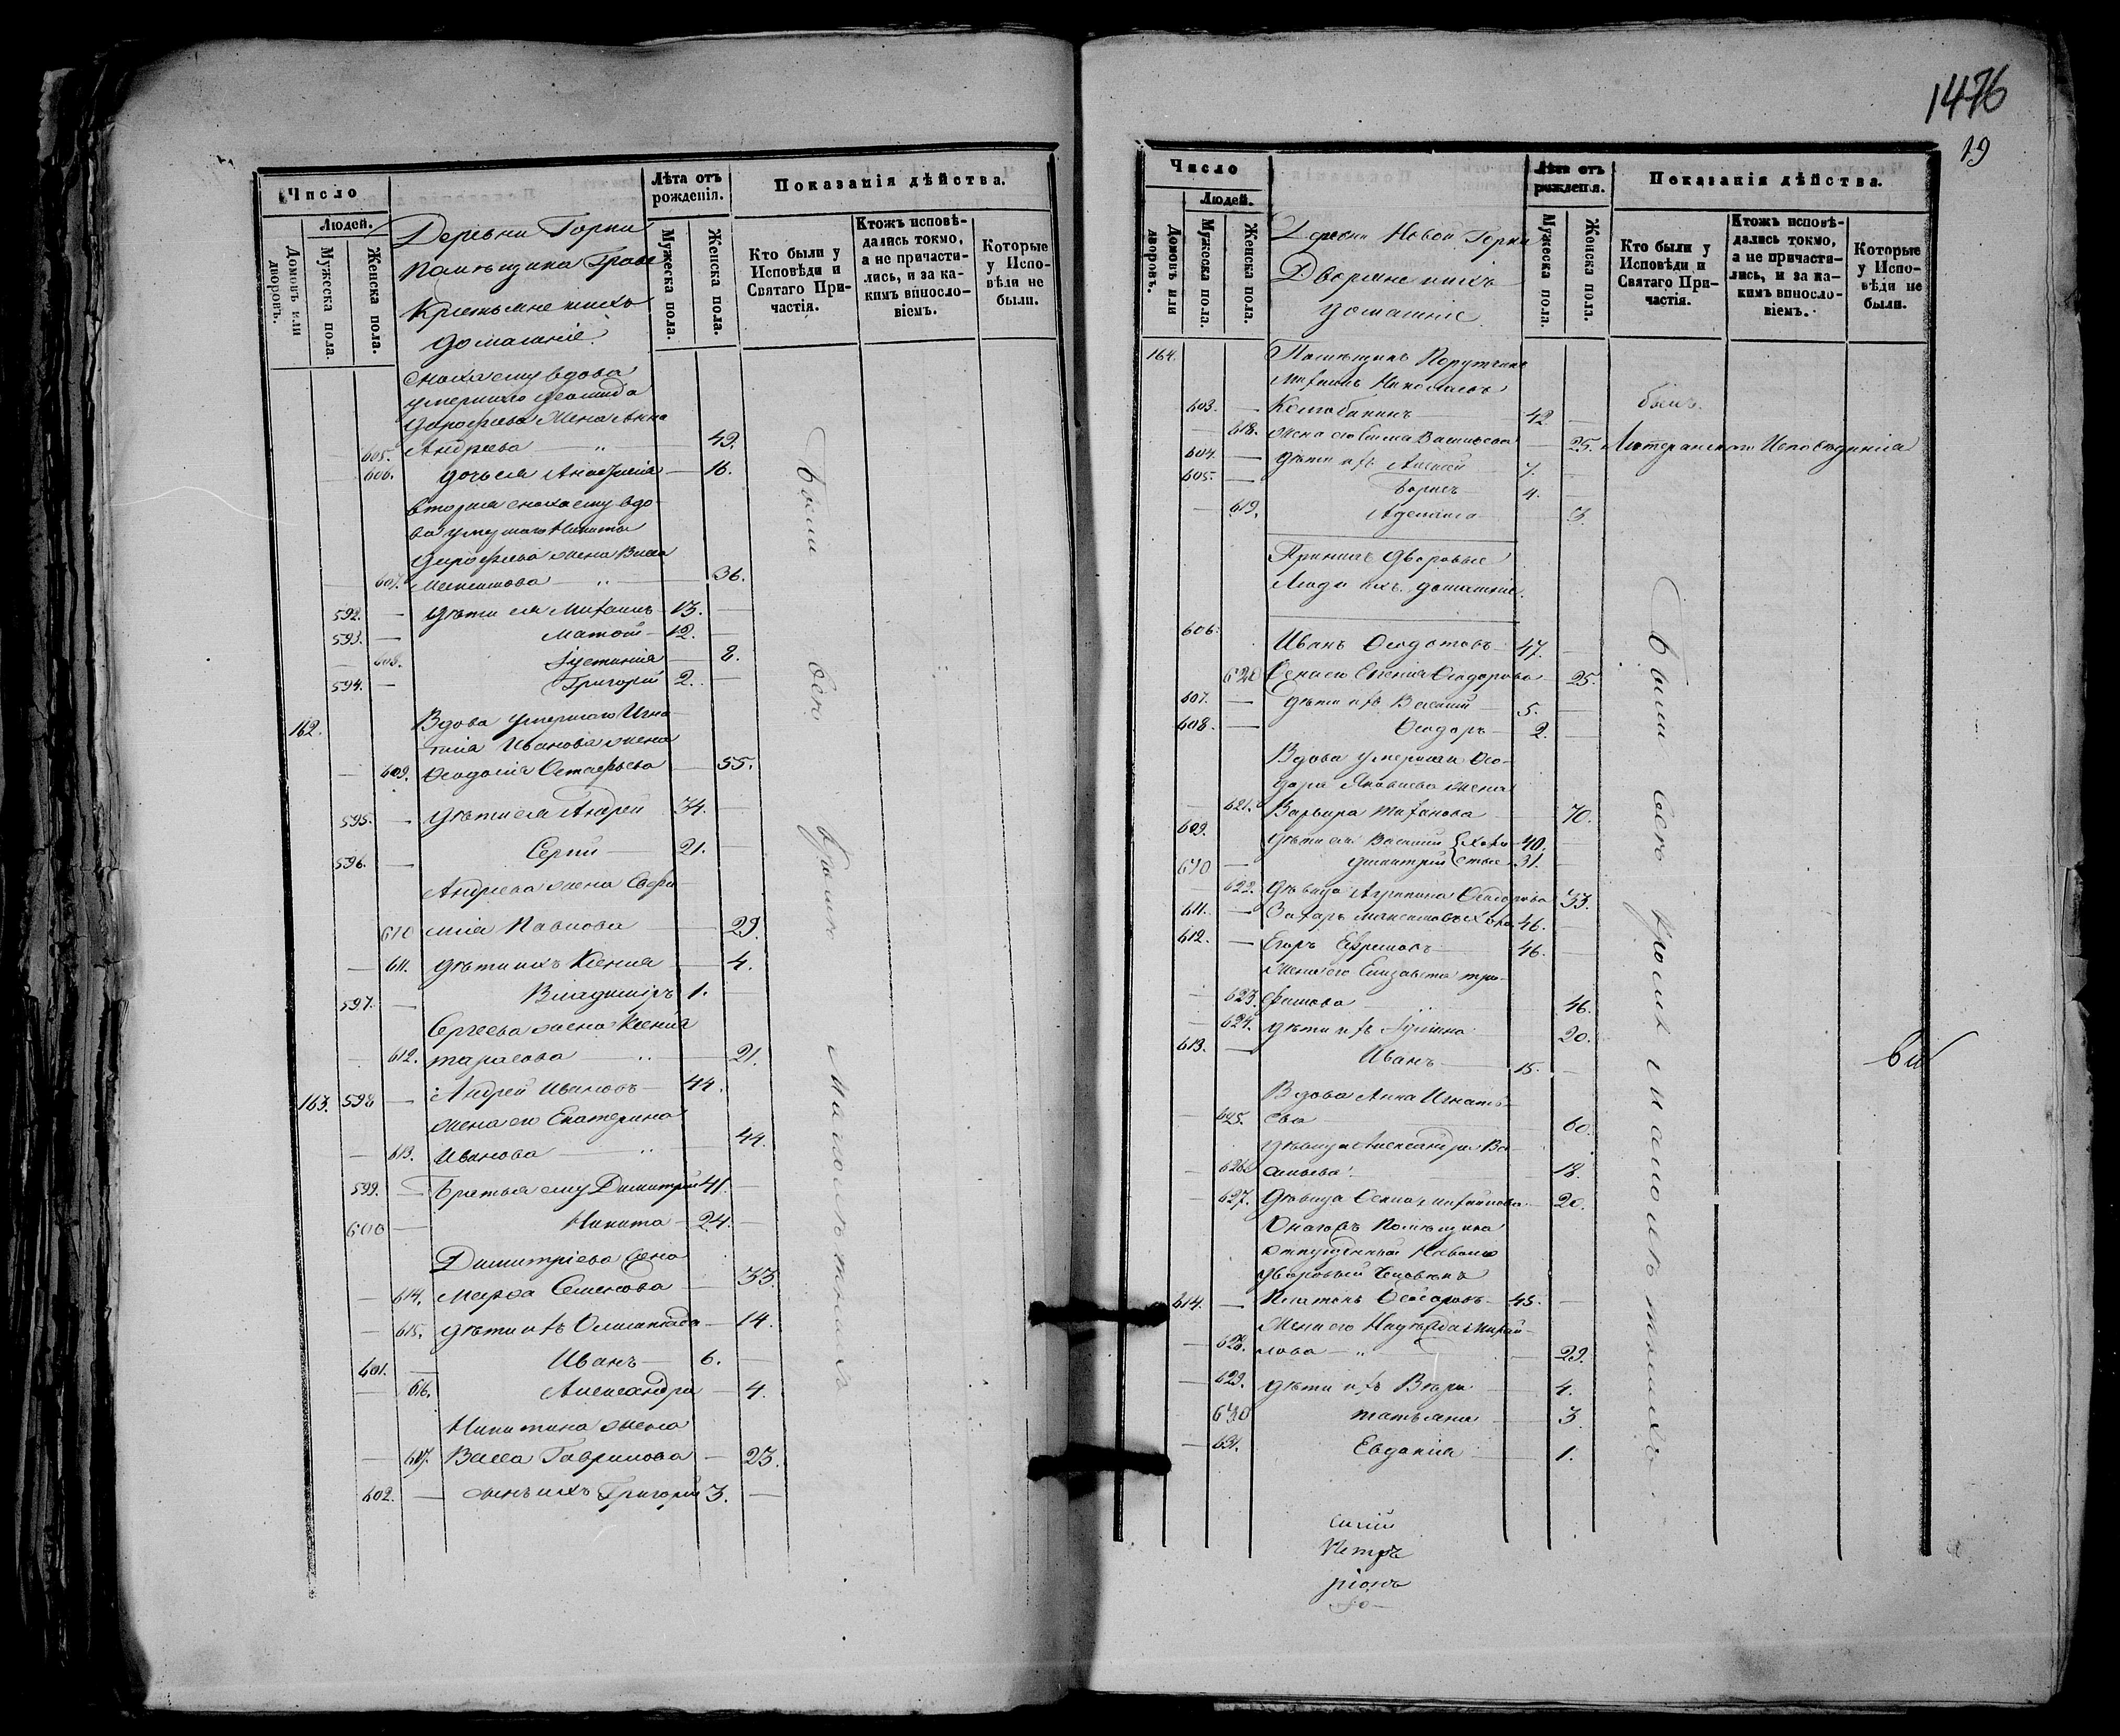 1476
19
Число
Людей.
Домовъ или дворовъ.
Мужеска пола.
Женска пола.
Лѣта отъ рожденія.
Мужеска пола.
Женска пола.
Показанія дѣйства.
Кто были у Исповѣди и Святаго Причастія.
Ктожъ исповѣдались токмо, а не причастились, и за какимъ винословіемъ.
Которые у Исповѣди не были.
Деревни Горки
помѣщика Граве
Крестьяне ихъ
домашніе.
сноха ему вдова
умершаго
Дорофеева жена Анна
605. Андреева — " — 49.
606. дочь ея — 16.
вторая сноха ему вдо-
ва умершаго Никиты
Дорофеева жена Васса
607. — " — 36.
592. — дѣти ея Михаилъ — 13. —
593. — 12. —
608. Іустинія — 8.
594. — Григорій 2. —
162. Вдова умершаго Игна-
тія Иванова жена
609. Ѳеодосія Остафьева — 55.
595. — дѣти ея Андрей 34. —
596. — Сергій — 21. —
Андреева жена
610 Павлова — 29.
611. дѣти ихъ Ксенія — 4.
597. — Владиміръ 1. —
Сергеева жена Ксенія
612. Тарасова — " — 21.
163. 598 — Андрей Ивановъ — 44. —
жена его Екатерина
613. Иванова — " — 44.
599. — братья ему Димитрій 41. —
600 — Никита — 24. —
Димитріева жена
614. Марѳа Семенова — 33.
615. дѣти ихъ Олимпіада — 14.
601. — Иванъ — 6. —
616. Александра — 4.
Никитина жена
617. Васса Гаврилова — 23.
602. — сынъ ихъ Григорій 3. —
были всѣ кромѣ малолѣтнихъ
Число
Людей.
Домовъ или дворовъ.
Мужеска пола.
Женска пола.
Лѣта отъ рожденія.
Мужеска пола.
Женска пола.
Показанія дѣйства.
Кто были у Исповѣди и Святаго Причастія.
Ктожъ исповѣдались токмо, а не причастились, и за какимъ винословіемъ.
Которые у Исповѣди не были.
Деревни Новой Горки
Дворяне ихъ
домашніе.
164. Помѣщикъ Порутчикъ
Михаилъ Николаевъ
603. — 42 — былъ.
618. жена его Васильева — 25. Лютеранскаго Исповѣданія
604. — дѣти ихъ Алексей — 7. —
605. — Борисъ — 4. —
619. — 3.
дворовые
Люди ихъ домашніе.
606. Иванъ Ѳеодотовъ — 47. —
620 жена его Ѳеодорова 25.
607. — дѣти ихъ Василій — 5. —
608. — Ѳеодоръ — 2. —
Вдова умершаго Ѳео-
дора Яковлева жена
621. Варвара — 70.
609. — дѣти ея Василій холо- 40. —
610 — Димитрій стые — 31. —
622. дѣвица Агрипина Ѳеодорова 33.
611. — Захаръ 46. —
612. — Егоръ Ефремовъ — 46. —
жена его Елизавета Тро-
623. фимова — 46.
624. дѣти ихъ — 20.
613. — Иванъ — 15. —
Вдова Анна Игнать-
625. ева — 60.
дѣвица Александра Ва-
626. сильева — 18.
627. дѣвица Михайлова — 20.
Помѣщика
отпущенный на волю
дворовый человѣкъ
614. — Платонъ Ѳеодоровъ — 45. —
жена его Надѣжда Михай-
628. лова — " — 29.
629. дѣти ихъ Вѣра — 4.
630 Татьяна — 3.
631. Евдокія — 1.
были всѣ кромѣ малолѣтнихъ
силій
Петръ
ріонъ